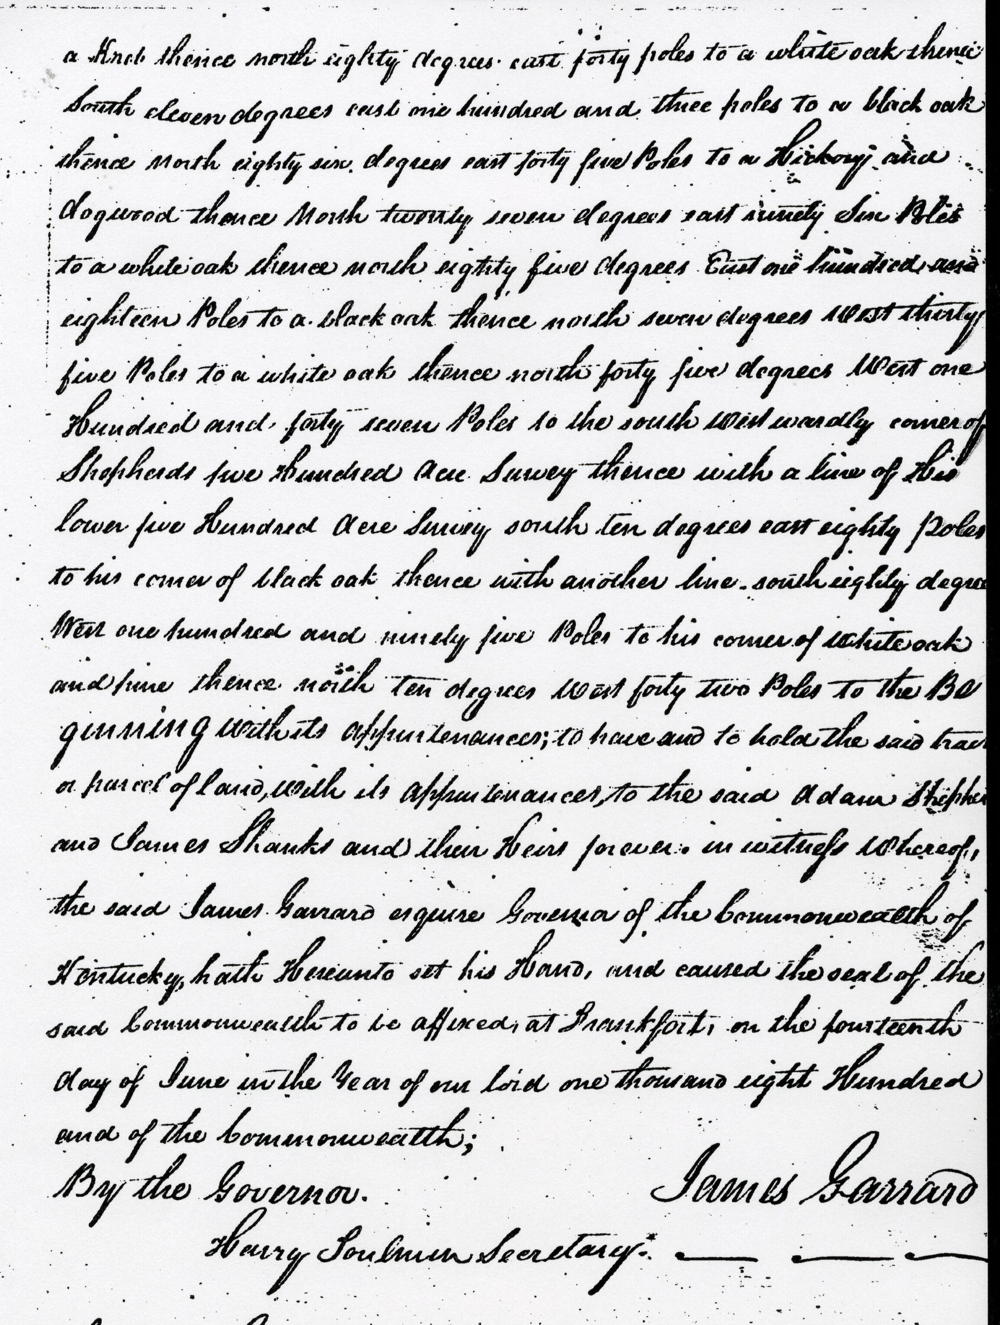 a Knob thence north eighty degrees east forty poles to a white oak thence
South eleven degrees east one hundred and three poles to a black oak
thence north eighty six degrees east forty five Poles to a Hickory and
dogwood thence North twenty seven degrees east ninety Six Poles
to a white oak thence north eighty five degrees East one hundred and
eighteen Poles to a black oak thence north seven degrees West thirty
five Poles to a white oak thence north forty five degrees West one
Hundred and forty seven Poles to the south Westwardly corner of
Shepherds five Hundred Acre Survey thence with a line of His
lower five Hundred Acre Survey south ten degrees east eighty Poles
to his corner of black oak thence with another line south eighty degree
West one hundred and ninety five Poles to his corner of white oak
and pine thence north ten degrees West forty two Poles to the Be
ginning with its appurtenances; to have and to hold the said tract
or parcel of land, with its appurtenances, to the said Adam Shepher
and James Shanks and their Heirs forever. in witness Whereof,
the said James Garrard esquire Governor of the Commonwealth of
Kentucky, hath Hereunto set his Hand, and caused the seal of the
said Commonwealth to be affixed, at Frankfort, on the fourteenth
day of June in the Year of our lord one thousand eight Hundred
and of the Commonwealth;
By the Governor. James Garrard
Harry Toulmin Secretary.